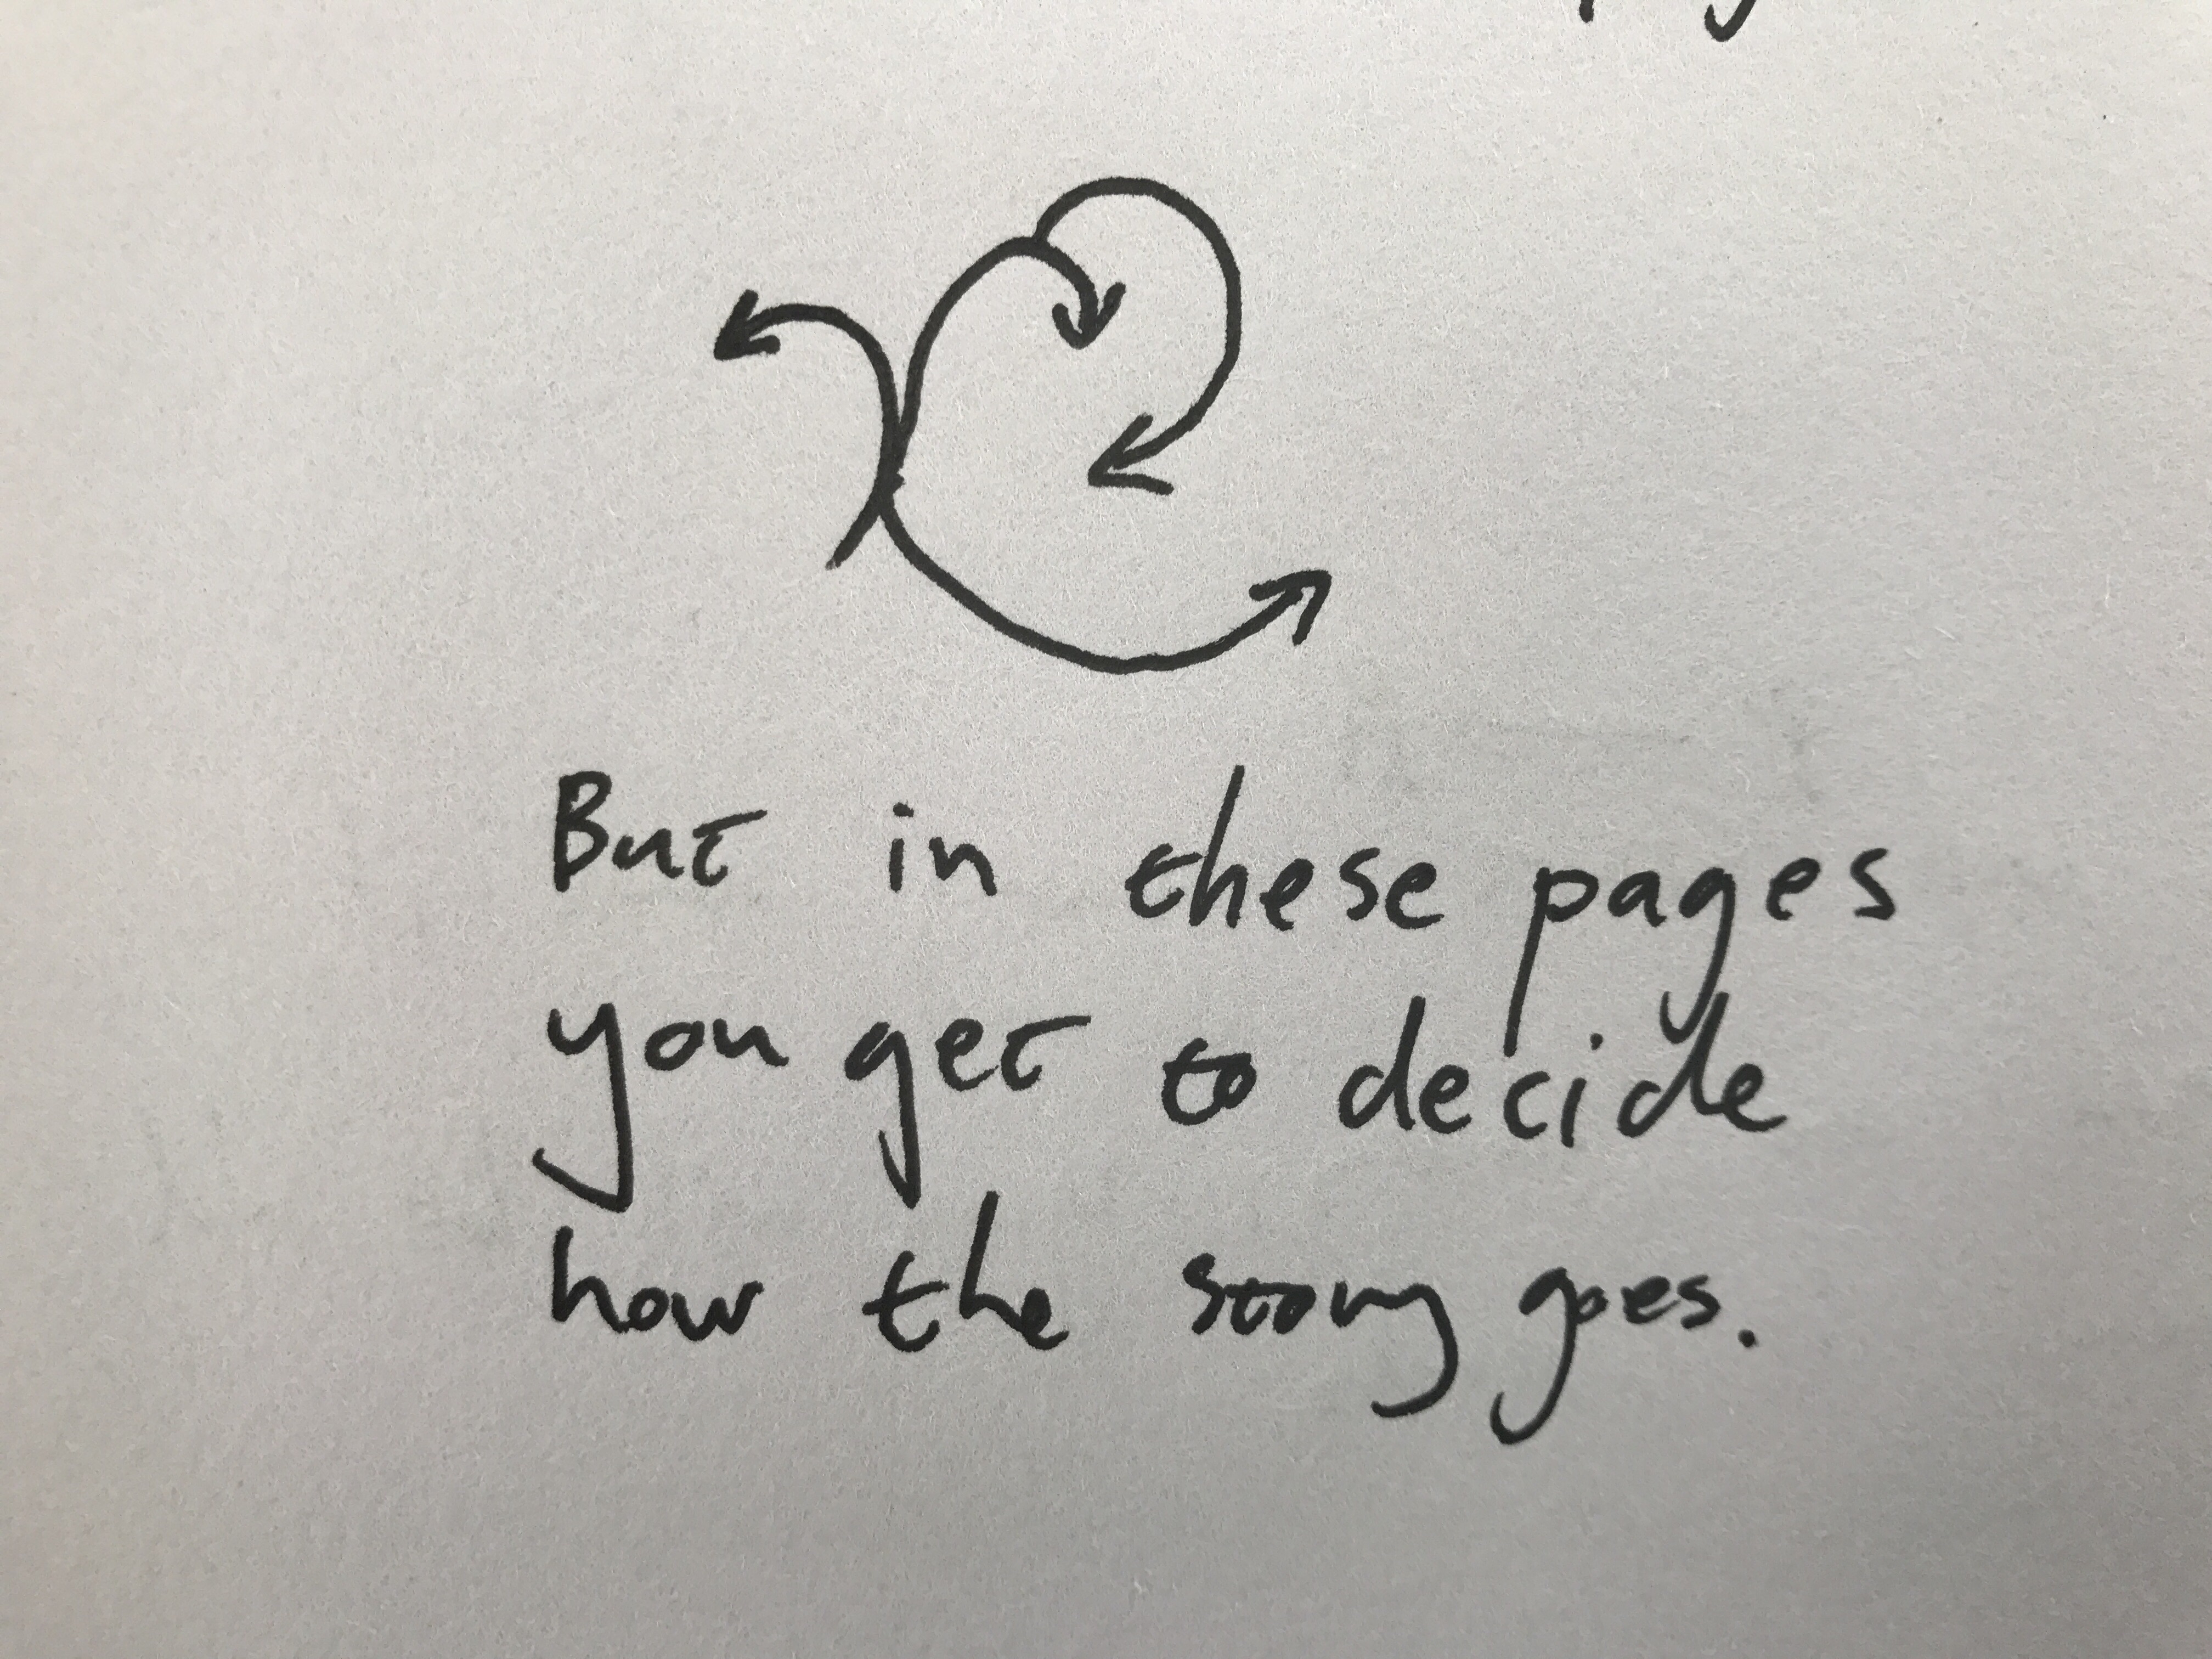 But in these pages
you get to decide
how the story goes.